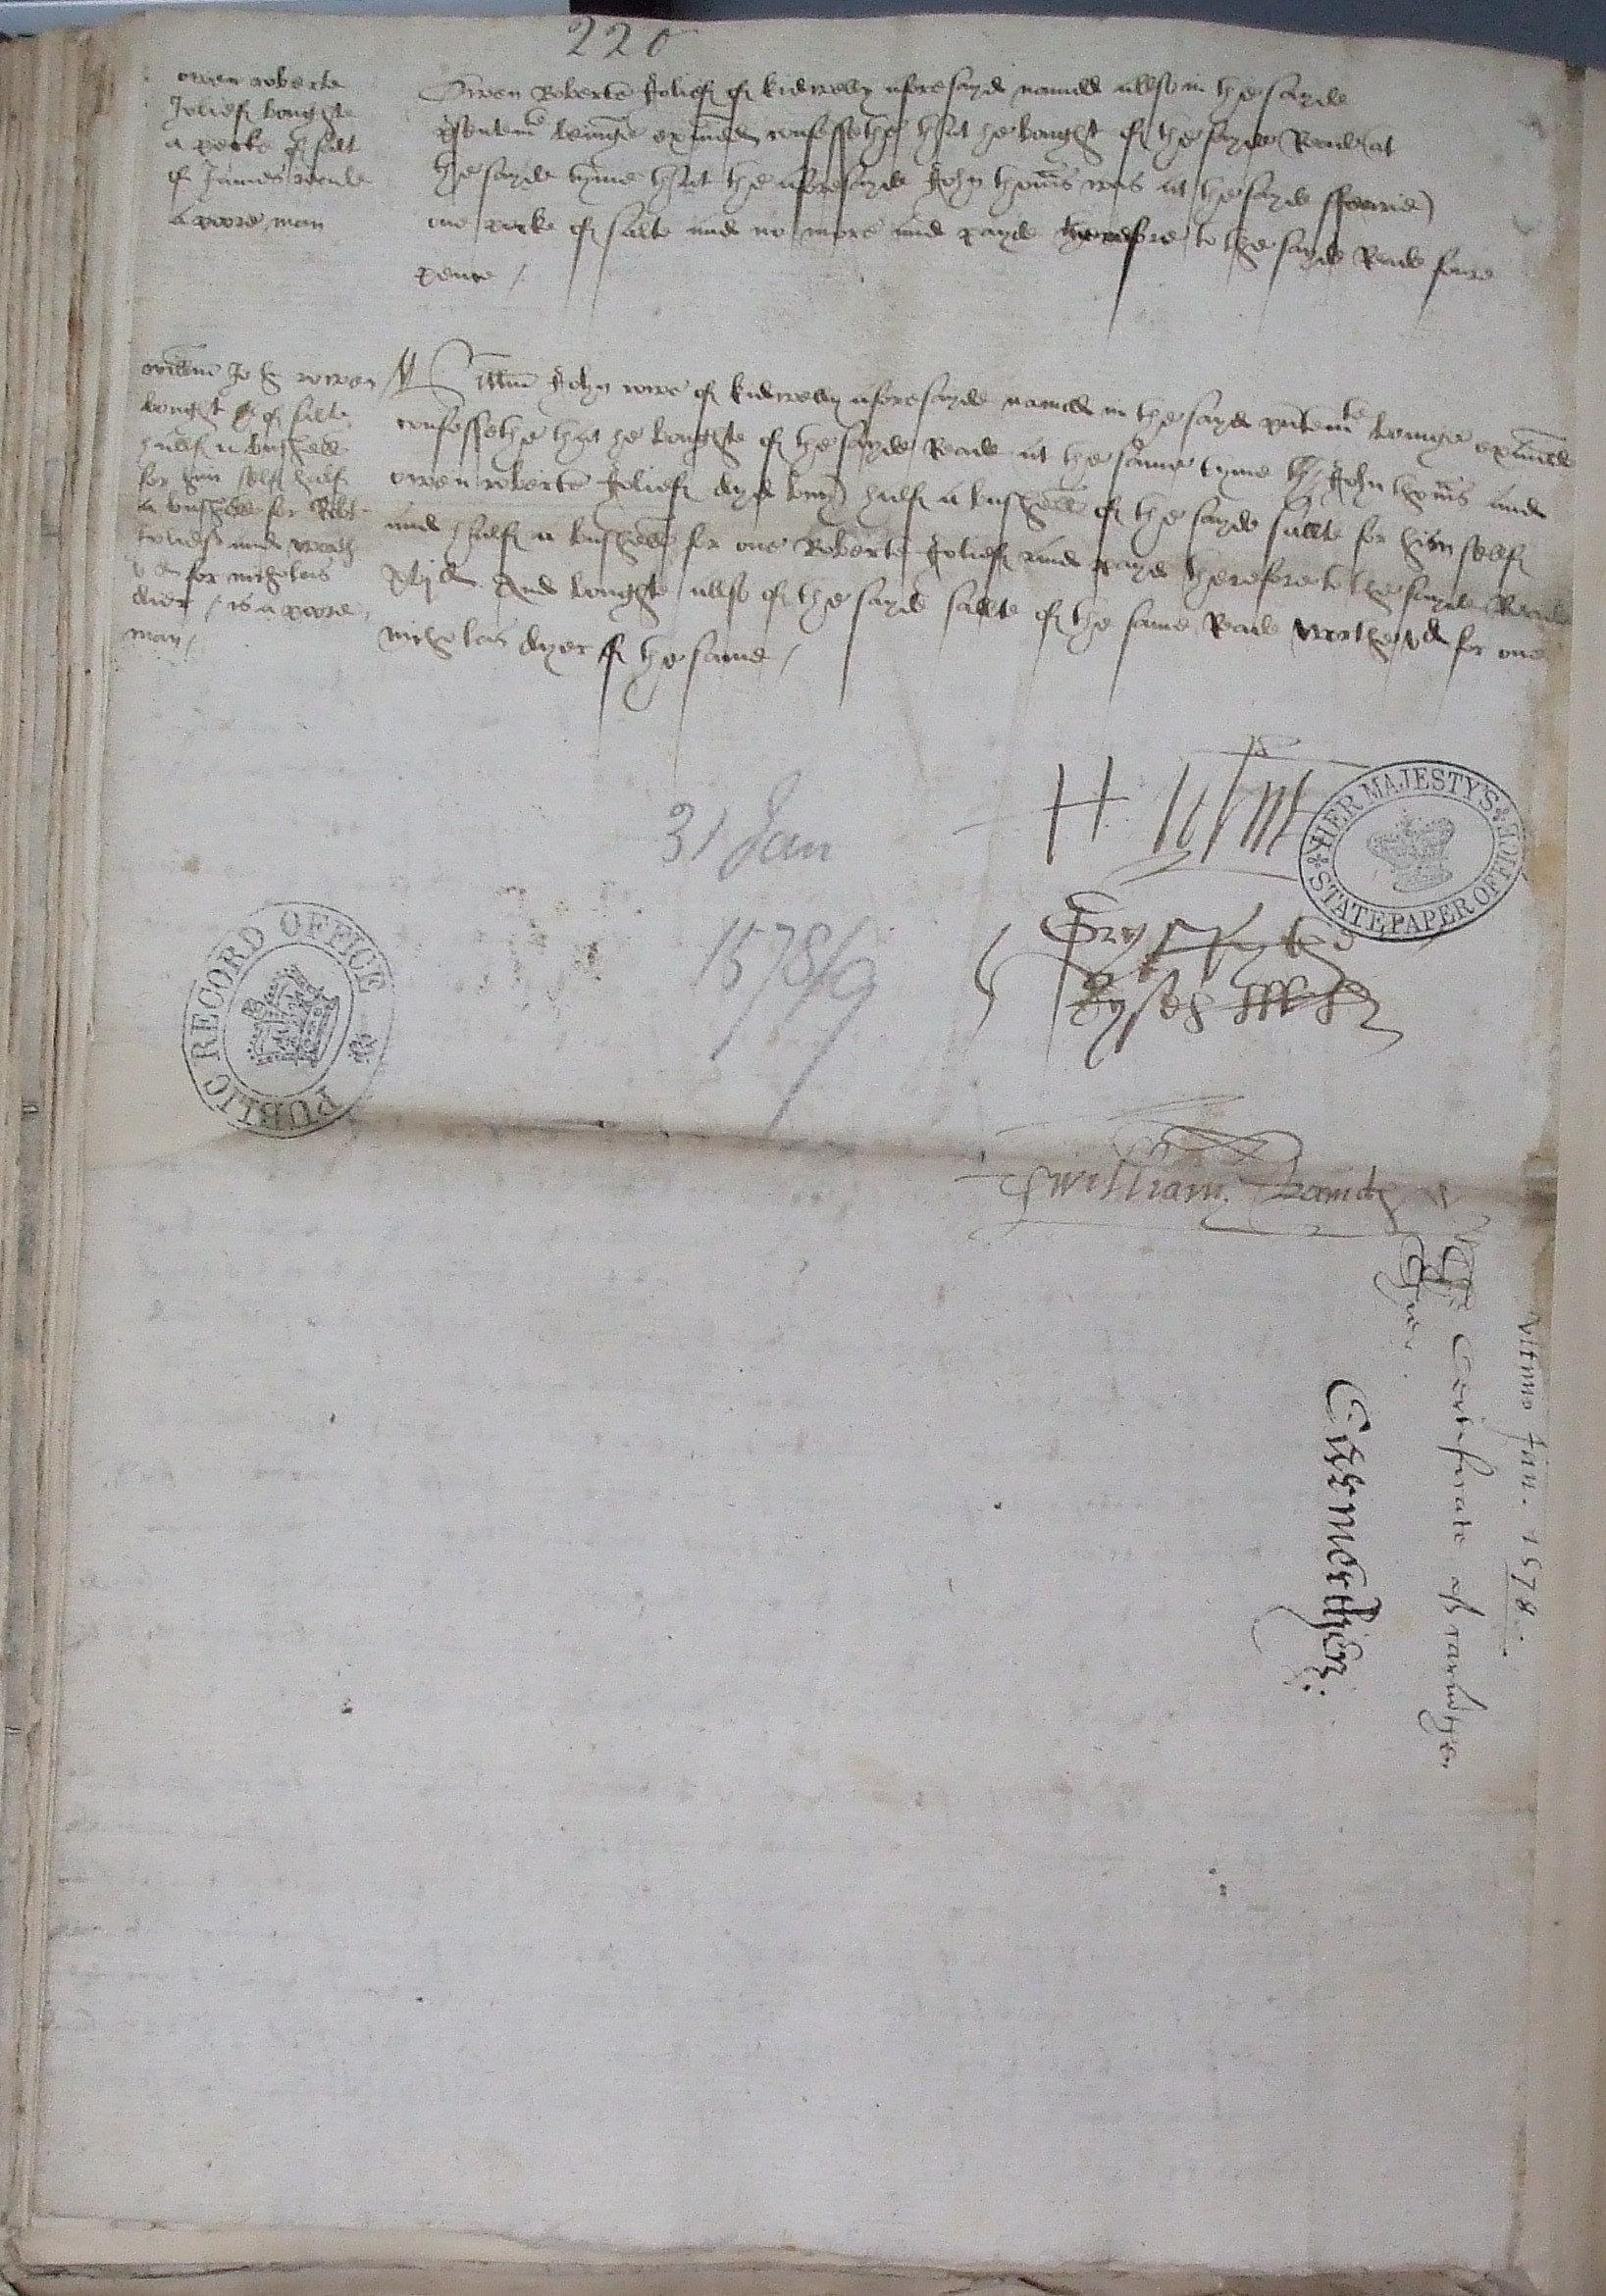 220
owen roberte
Joliff boughte
a pecke of salt
of James Reade
a poore man
Owen Roberte Joliff of kidwelly aforesayde named allso in the sayde
beinge examined confessethe that he bought of the sayde Reade at
the sayde tyme that the aforesayde John thomas was at the sayde
one pecke of salte and no more and payde therefore to the sayde Reade foure
pence /
willm John
bought of salte
half a bushell
for him self half
a bushell for Robt
Jolief and worth
v d for nicholas
dier / is a poore
man /
Willm John of kidwelly aforesayde named in the sayde beinge examined
confessethe that he boughte of the sayde Reade at the same tyme John thomas and
owen roberte Jolief dyd buy half a bushell of the sayde sallte for him self
and half a bushell for one Roberte Jolief and payde therefore to the sayde Reade
And boughte allso of the sayde sallte of the same Reade worthe v d for one
nicholas dyer of the same /
31 Jan
1578/9
HER MAJESTY'S STATE PAPER OFFICE
PUBLIC RECORD OFFICE
william Davids
vltimo Jan. 1578.
The Certificate of
Carmerthen: